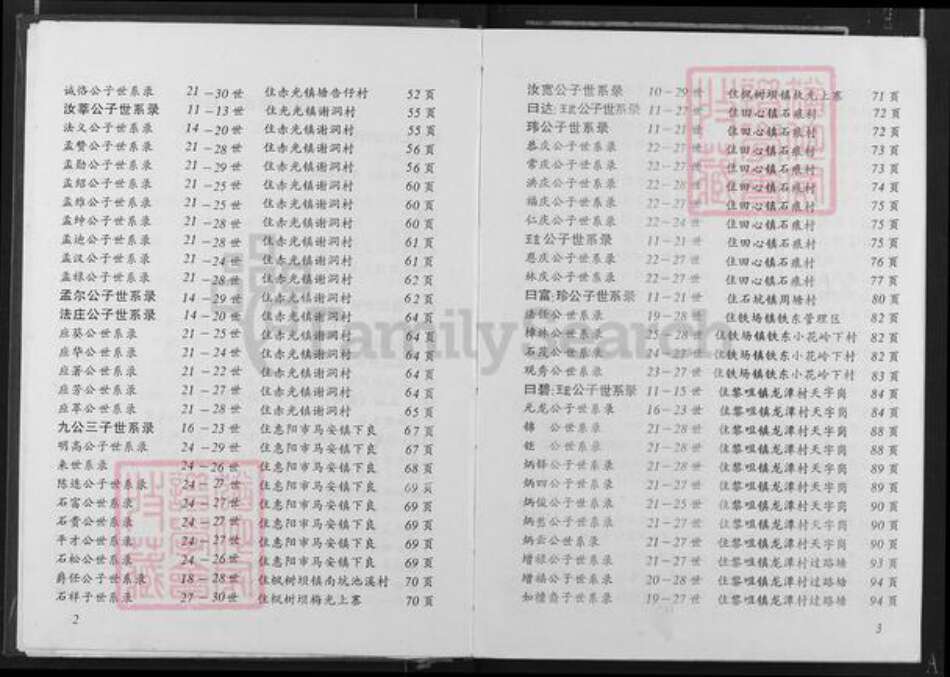 诚洛公子世系录 21－30世 住赤光镇塘告仔村 52页
汝莘公子世系录 11－13世 住光光镇谢洞村 55页
法义公子世系录 14－20世 住赤光镇谢洞村 55页
孟赞公子世系录 21－28世 住赤光镇谢洞村 56页
孟勋公子世系录 21－29世 住赤光镇谢洞村 56页
孟绍公子世系录 21－25世 住赤光镇谢洞村 60页
孟维公子世系录 21－25世 住赤光镇谢洞村 60页
孟绅公子世系录 21－28世 住赤光镇谢洞村 60页
孟迪公子世系录 21－28世 住赤光镇谢洞村 61页
孟汉公子世系录 21－24世 住赤光镇谢洞村 61页
孟禄公子世系录 21－28世 住赤光镇谢洞村 62页
孟尔公子世系录 14－29世 住赤光镇谢洞村 62页
法庄公子世系录 14－20世 住赤光镇谢洞村 64页
应葵公世系录 21－25世 住赤光镇谢洞村 64页
应华公世系录 21－24世 住赤光镇谢洞村 64页
应著公世系录 21－22世 住赤光镇谢洞村 64页
应芳公世系录 21－27世 住赤光镇谢洞村 64页
应萃公世系录 21－28世 住赤光镇谢洞村 65页
九公三子世系录 16－23世 住惠阳市马安镇下良 67页
明高公子世系录 24－29世 住惠阳市马安镇下良 67页
来世系录 24－26世 住惠阳市马安镇下良 68页
陈连公子世系录 24－27世 住惠阳市马安镇下良 69页
石富公世系录 24－27世 住惠阳市马安镇下良 69页
石贵公世系录 24－27世 住惠阳市马安镇下良 69页
平才公世系录 24－27世 住惠阳市马安镇下良 69页
石松公世系录 24－26世 住惠阳市马安镇下良 69页
爵任公子世系录 18－28世 住枫树坝镇南坑池溪村 70页
石祥子世系录 27－30世 住枫树坝梅光上寨 70页
2
汝宽公子世系录 10－29世 住枫树坝镇 光上寨 71页
曰达:珏公子世系录 11－27世 住田心镇石痕村 72页
玮公子世系录 11－21世 住田心镇石痕村 72页
恭庆公子世系录 22－27世 住田心镇石痕村 73页
常庆公子世系录 22－27世 住田心镇石痕村 73页
洪庆公子世系录 22－28世 住田心镇石痕村 74页
福庆公子世系录 22－27世 住田心镇石痕村 75页
仁庆公子世系录 22－24世 住田心镇石痕村 75页
珏公子世系录 11－21世 住田心镇石痕村 75页
恩庆公子世系录 22－27世 住田心镇石痕村 76页
林庆公子世系录 22－27世 住田心镇石痕村 77页
曰富:珍公子世系录 11－21世 住石坑镇周塘村 80页
法任公世系录 19－28世 住铁场镇铁东管理区 82页
樟妹公世系录 25－28世 住铁场镇铁东小花岭下村 82页
石茂公世系录 24－27世 住铁场镇铁东小花岭下村 82页
观秀公世系录 23－27世 住铁场镇铁东小花岭下村 83页
曰碧:珏公子世系录 11－15世 住黎咀镇龙潭村天字岗 84页
元龙公子世系录 16－23世 住黎咀镇龙潭村天字岗 84页
锦 公世系录 21－28世 住黎咀镇龙潭村天字岗 88页
钜 公世系录 21－28世 住黎咀镇龙潭村天字岗 88页
炳铎公子世系录 21－28世 住黎咀镇龙潭村天字岗 89页
炳四公子世系录 21－27世 住黎咀镇龙潭村天字岗 89页
炳俊公子世系录 21－25世 住黎咀镇龙潭村天字岗 90页
炳 公子世系录 21－27世 住黎咀镇龙潭村天字岗 90页
炳云公世系录 21－27世 住黎咀镇龙潭村天字岗 90页
增禄公子世系录 21－27世 住黎咀镇龙潭村过路塘 93页
增福公子世系录 20－28世 住黎咀镇龙潭村过路塘 94页
如檀裔子世系录 19－27世 住黎咀镇龙潭村过路塘 94页
3
FamilySearch
A